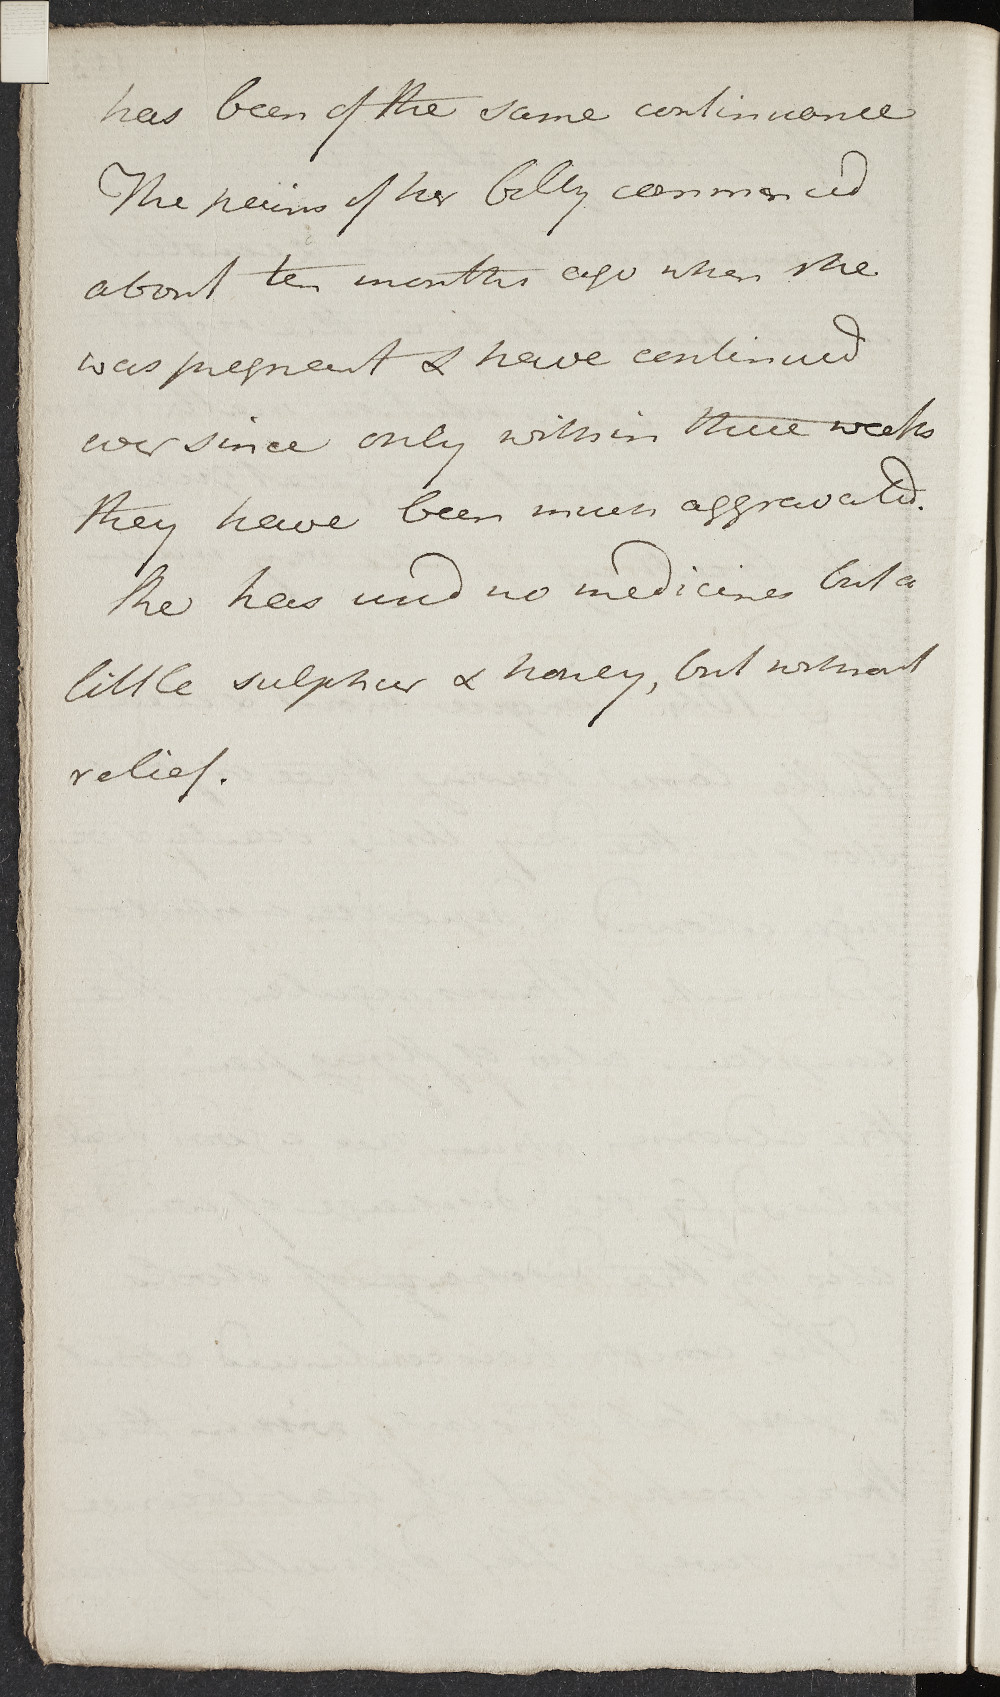 has been of the same continuance
The pains of her belly commenced
about ten months ago when she
was pregnant & have continued
ever since only within three weeks
they have been much aggravated.
She has used no medicines but a
little sulphur & honey, but without
relief.